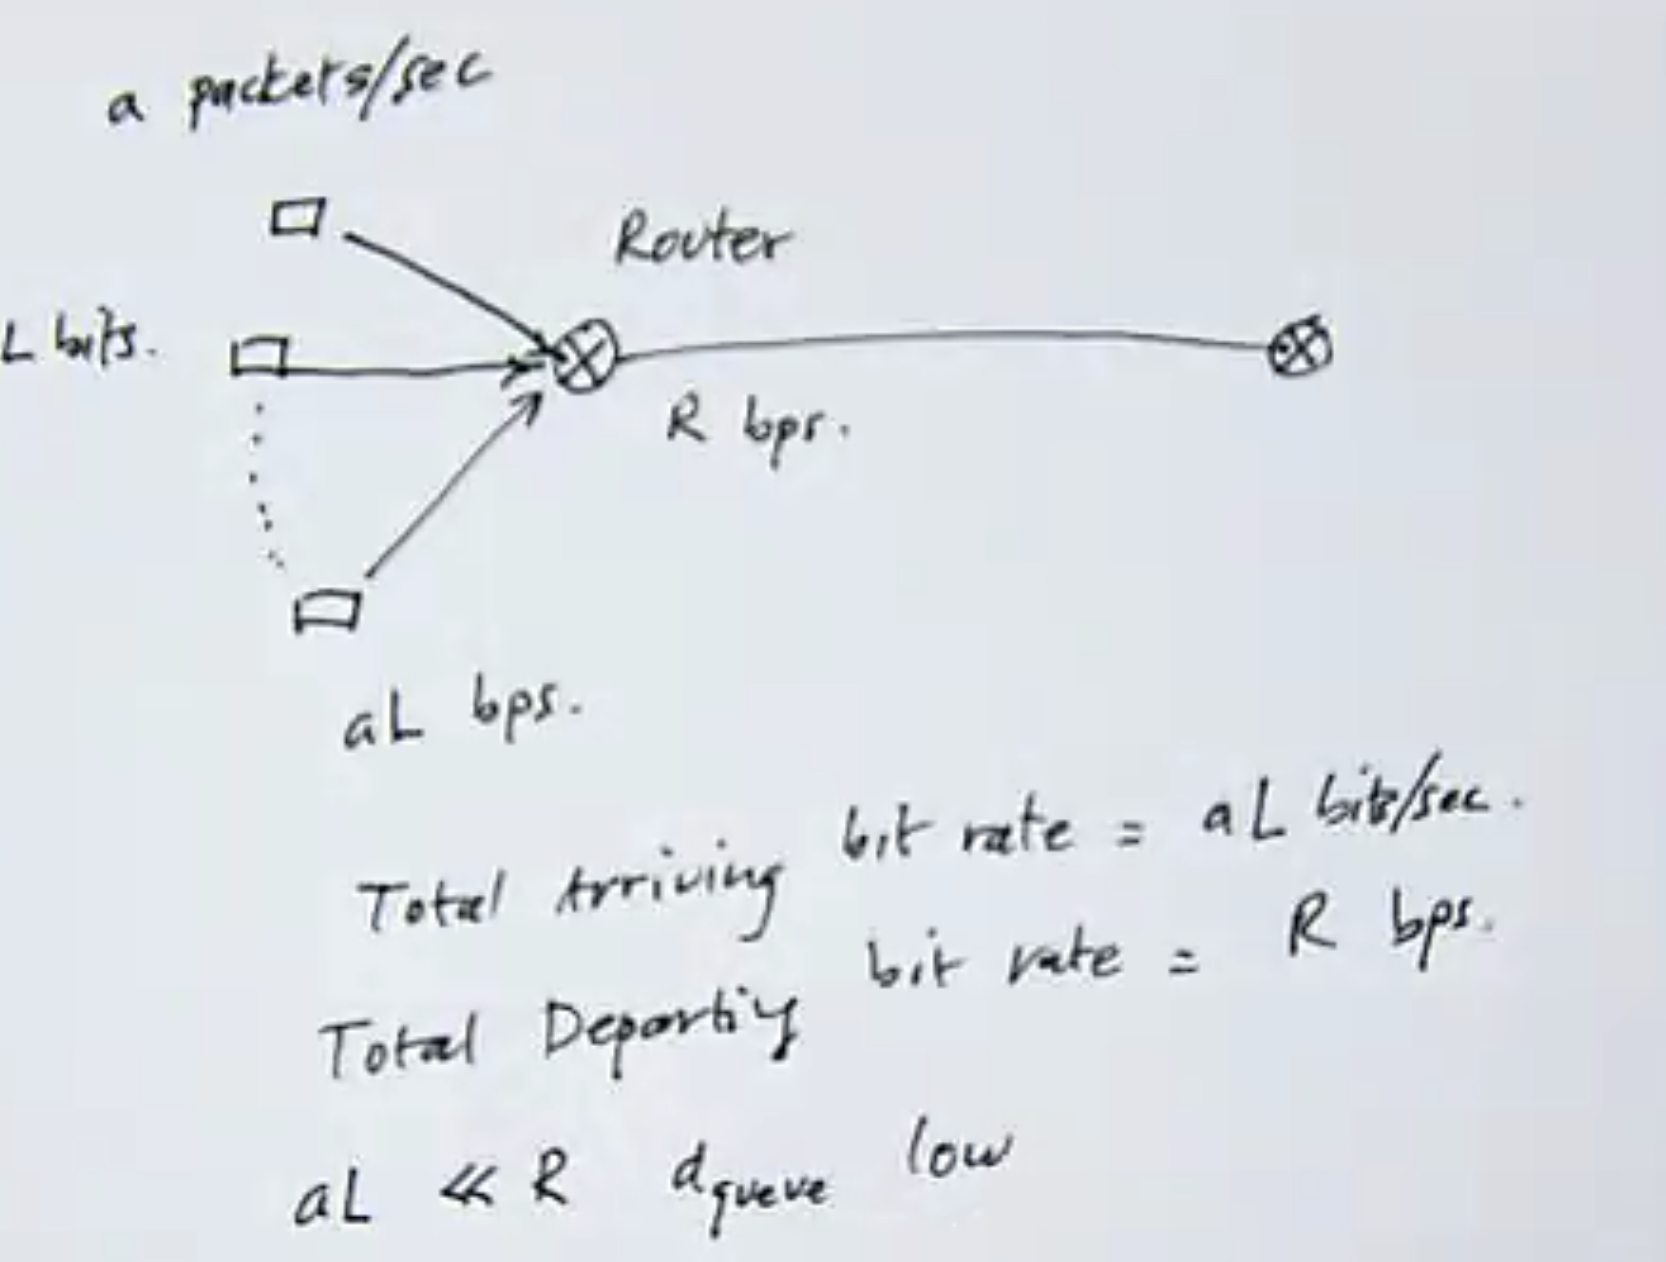 a packets/sec
Router
L bits.
R bps.
aL bps.
Total Arriving bit rate = aL bits/sec.
Total Departing bit rate = R bps.
aL << R dqueue low